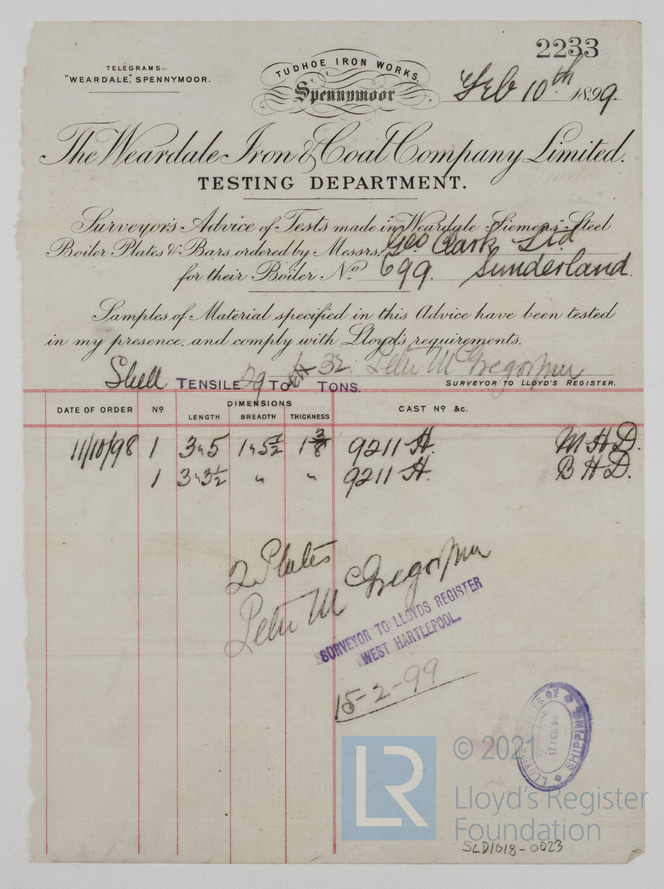 2233
TELEGRAMS:-
"WEARDALE," SPENNYMOOR.
TUDHOE IRON WORKS,
Spennymoor
Feb 10th 1899
The Weardale Iron & Coal Company Limited.
TESTING DEPARTMENT.
Surveyor's Advice of Tests made in "Weardale-Siemens" Steel
Boiler Plates & Bars, ordered by Messrs. Geo Clark Ltd
for their Boiler No. 699. Sunderland.
Samples of Material specified in this Advice have been tested
in my presence, and comply with Lloyd's requirements.
Shell TENSILE 29 TO 32 TONS. Peter McGregor Junr
SURVEYOR TO LLOYD'S REGISTER.
DATE OF ORDER No DIMENSIONS CAST No &c.
LENGTH BREADTH THICKNESS
11/10/98 1 3"5 1"5½ 1 3/8 9211 H. M H D.
1 3"3½ " " 9211 H. B H D.
2 Plates
Peter McGregor Junr
SURVEYOR TO LLOYDS REGISTER
WEST HARTLEPOOL.
15-2-99
LLOYDS OF SHIPPING
17 FEB 99
LR
© 2021
Lloyd's Register
Foundation
SLD1018-0023